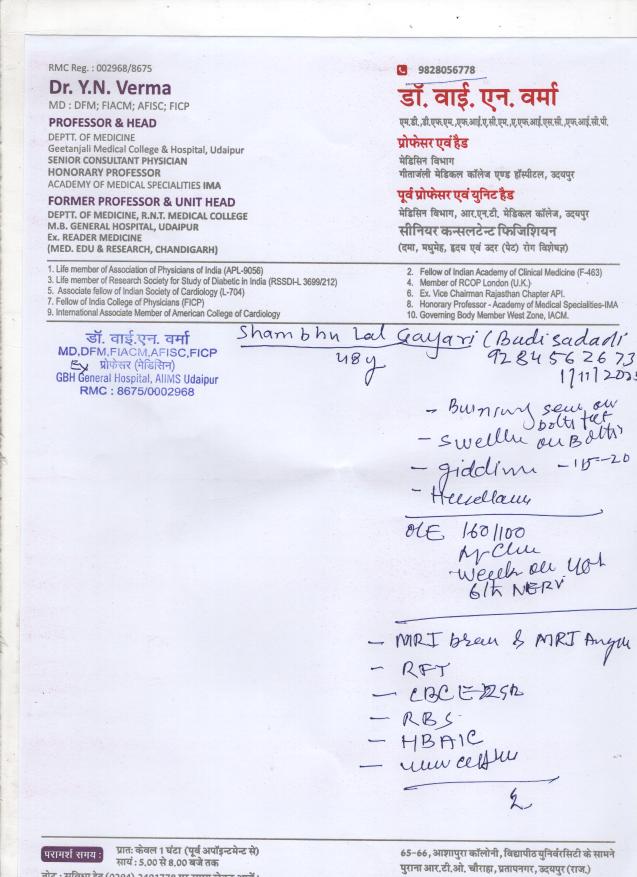 RMC Reg. : 002968/8675
Dr. Y.N. Verma
MD : DFM; FIACM; AFISC; FICP
PROFESSOR & HEAD
DEPTT. OF MEDICINE
Geetanjali Medical College & Hospital, Udaipur
SENIOR CONSULTANT PHYSICIAN
HONORARY PROFESSOR
ACADEMY OF MEDICAL SPECIALITIES IMA
FORMER PROFESSOR & UNIT HEAD
DEPTT. OF MEDICINE, R.N.T. MEDICAL COLLEGE
M.B. GENERAL HOSPITAL, UDAIPUR
Ex. READER MEDICINE
(MED. EDU & RESEARCH, CHANDIGARH)
9828056778
डॉ. वाई. एन. वर्मा
एम.डी.,डी.एफ.एम.,एफ.आई.ए.सी.एम.,ए.एफ.आई.एस.सी.,एफ.आई.सी.पी.
प्रोफेसर एवं हैड
मेडिसिन विभाग
गीतांजली मेडिकल कॉलेज एण्ड हॉस्पीटल, उदयपुर
पूर्व प्रोफेसर एवं युनिट हैड
मेडिसिन विभाग, आर.एन.टी. मेडिकल कॉलेज, उदयपुर
सीनियर कन्सलटेन्ट फिजिशियन
(दमा, मधुमेह, हृदय एवं उदर (पेट) रोग विशेषज्ञ)
1. Life member of Association of Physicians of India (APL-9056)
3. Life member of Research Society for Study of Diabetic in India (RSSDI-L 3699/212)
5. Associate fellow of Indian Society of Cardiology (L-704)
7. Fellow of India College of Physicians (FICP)
9. International Associate Member of American College of Cardiology
2. Fellow of Indian Academy of Clinical Medicine (F-463)
4. Member of RCOP London (U.K.)
6. Ex. Vice Chairman Rajasthan Chapter API.
8. Honorary Professor - Academy of Medical Specialities-IMA
10. Governing Body Member West Zone, IACM.
डॉ. वाई.एन. वर्मा
MD,DFM,FIACM,AFISC,FICP
Ex प्रोफेसर (मेडिसिन)
GBH General Hospital, AIIMS Udaipur
RMC : 8675/0002968
Shambhu Lal Gayari (Budi sadadi
48y 9284562673
1/11/2025
- Burning sen on
both feet
- Swelling on Both
- giddiness - 15-20
- Headache
O/E 160/100
weak on
6th NERV
- MRI brain & MRI Angio
- RFT
- CBC ESR
- RBS
- HBA1C
परामर्श समय :
प्रातः केवल 1 घंटा (पूर्व अपॉइन्टमेन्ट से)
सायं : 5.00 से 8.00 बजे तक
65-66, आशापुरा कॉलोनी, विद्यापीठ युनिर्वरसिटी के सामने
पुराना आर.टी.ओ. चौराहा, प्रतापनगर, उदयपुर (राज.)